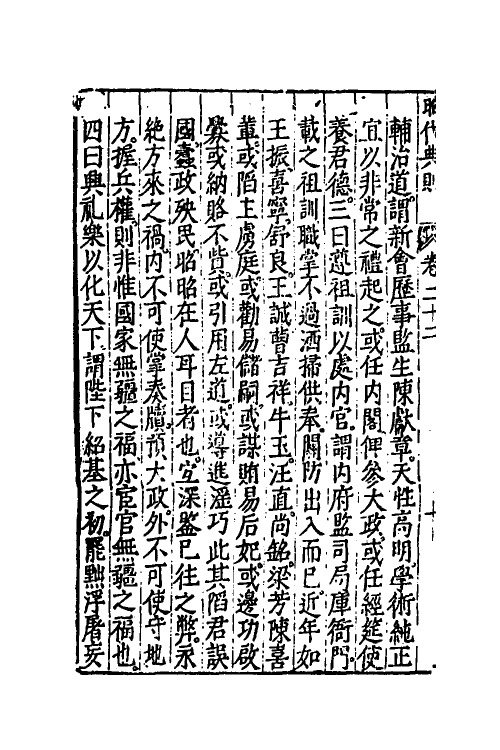 昭代典則 卷二十二
輔治道謂新會歷事監生陳獻章天性高明學術純正
宜以非常之禮起之或任内閣俾參大政或任經筵使
養君德三曰遵祖訓以處内官謂内府監司局庫衙門
載之祖訓職掌不過洒掃供奉關防出入而已近年如
王振喜寧舒良王誠曹吉祥牛玉汪直尚銘梁芳陳喜
輩或陷主虜庭或勸易儲嗣或謀賄易后妃或邊功啟
釁或納賂不貲或引用左道或導進滛巧此其陷君誤
國蠹政殃民昭昭在人耳目者也宜深鑒已往之弊永
絶方來之禍内不可使掌奏牘預大政外不可使守地
方握兵權則非惟國家無疆之福亦宦官無疆之福也
四曰興礼樂以化天下謂陛下紹基之初罷黜浮屠妄